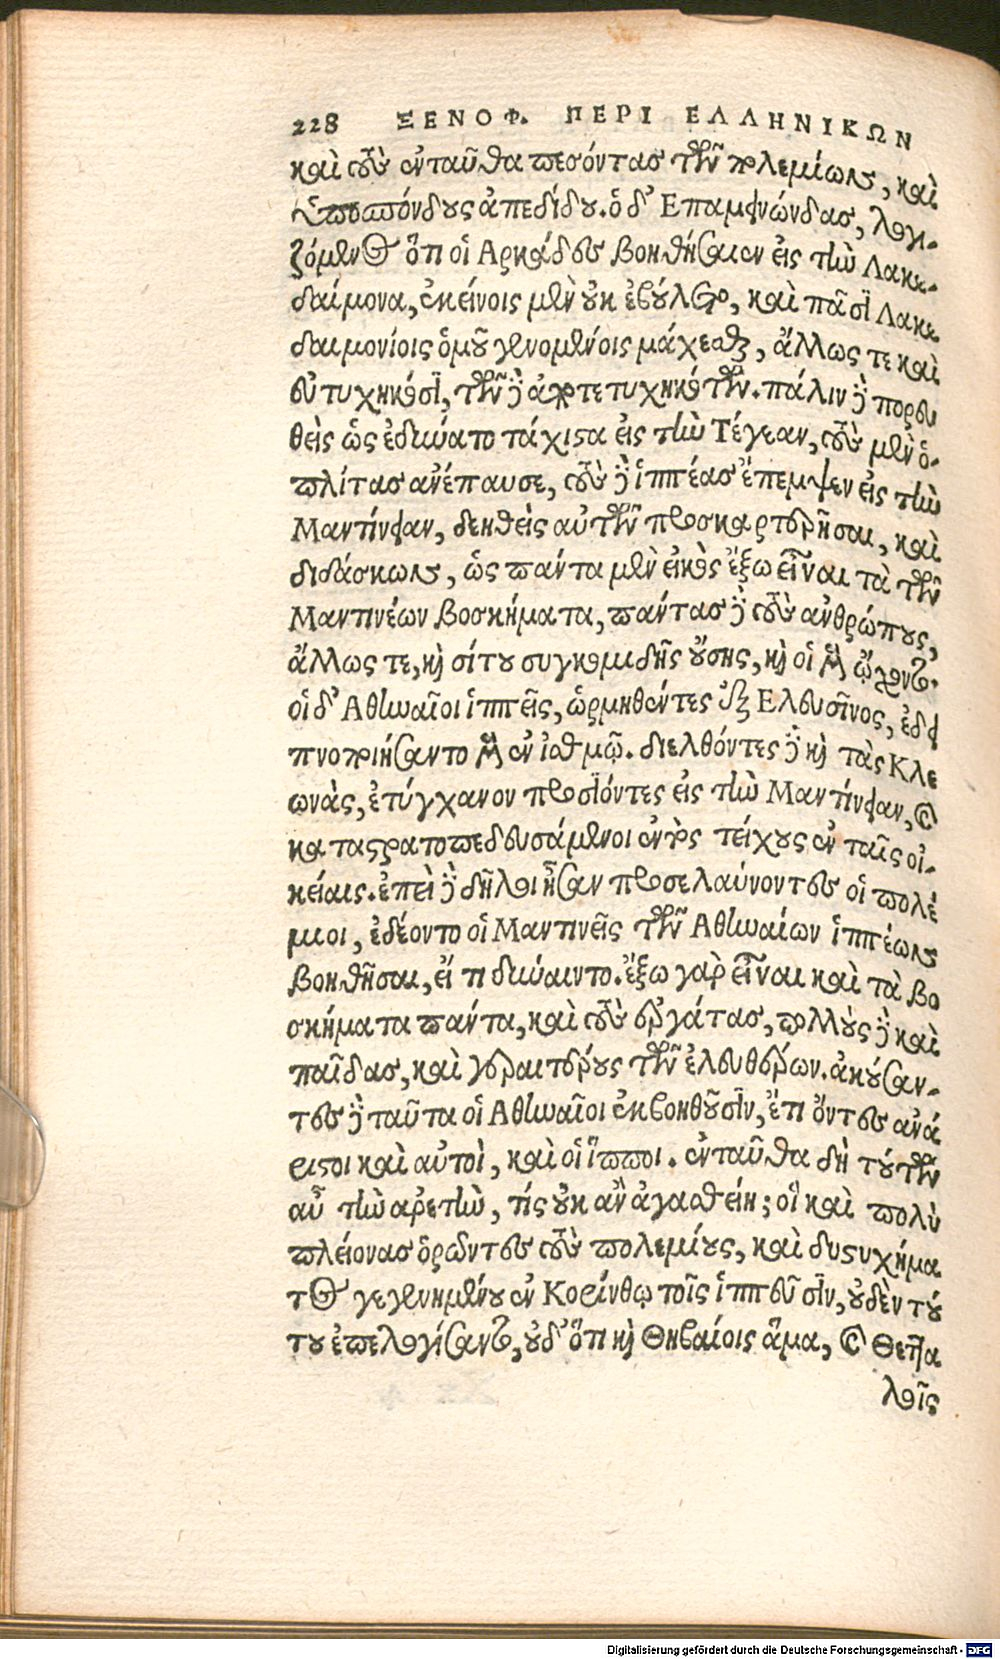 228 ΞΕΝΟΦ. ΠΕΡΙ ΕΛΛΗΝΙΚΩΝ
καὶ τοὺς ἐνταῦθα πεσόντας τῶν πολεμίων, καὶ
ὑποσπόνδους ἀπεδίδου. ὁ δ' Επαμεινώνδας, λογι-
ζόμενος ὅτι οἱ Αρκάδες βοηθήσοιεν εἰς τὴν Λακε-
δαίμονα, ἐκείνοις μὲν οὐκ ἐβούλετο, καὶ πᾶσι Λακε
δαιμονίοις ὁμοῦ γενομένοις μάχεσθαι, ἄλλως τε καὶ
εὐτυχηκόσι, τῶν δὲ ἀποτετυχηκότων. πάλιν δὲ πορευ
θεὶς ὡς ἐδύνατο τάχιστα εἰς τὴν Τέγεαν, τοὺς μὲν ὁ-
πλίτας ἀνέπαυσε, τοὺς δὲ ἱππέας ἔπεμψεν εἰς τὴν
Μαντίνειαν, δεηθεὶς αὐτῶν προσκαρτερῆσαι, καὶ
διδάσκων, ὡς πάντα μὲν εἰκὸς ἔξω εἶναι τὰ τῶν
Μαντινέων βοσκήματα, πάντας δὲ τοὺς ἀνθρώπους,
ἄλλως τε, καὶ σίτου συγκομιδῆς οὔσης, καὶ οἱ μὲν ᾤχοντο.
οἱ δ' Αθηναῖοι ἱππεῖς, ὡρμηθέντες ἐξ Ελευσῖνος, ἐδει
πνοποιήσαντο μὲν ἐν ἰσθμῷ. διελθόντες δὲ καὶ τὰς Κλε
ωνὰς, ἐτύγχανον προσιόντες εἰς τὴν Μαντίνειαν, καὶ
καταστρατοπεδευσάμενοι ἐντὸς τείχους ἐν ταῖς οἰ-
κείαις. ἐπεὶ δὲ δῆλοι ἦσαν προσελαύνοντες οἱ πολέ
μιοι, ἐδέοντο οἱ Μαντινεῖς τῶν Αθηναίων ἱππέων
βοηθῆσαι, εἴ τι δύναιντο. ἔξω γὰρ εἶναι καὶ τὰ βο
σκήματα πάντα, καὶ τοὺς ἐργάτας, πολλοὺς δὲ καὶ
παῖδας, καὶ γεραιτέρους τῶν ἐλευθέρων. ἀκούσαν-
τες δὲ ταῦτα οἱ Αθηναῖοι ἐκβοηθοῦσιν, ἔτι ὄντες ἀνά
ριστοι καὶ αὐτοὶ, καὶ οἱ ἵπποι. ἐνταῦθα δὴ τούτων
αὖ τὴν ἀρετὴν, τίς οὐκ ἂν ἀγασθείη; οἳ καὶ πολὺ
πλείονας ὁρῶντες τοὺς πολεμίους, καὶ δυστυχήμα
τος γεγενημένου ἐν Κορίνθῳ τοῖς ἱππεῦσιν, οὐδὲν τού
του ἐπελογίσαντο, οὐδ' ὅτι καὶ Θηβαίοις ἅμα, καὶ Θετταλοῖς
λοῖς